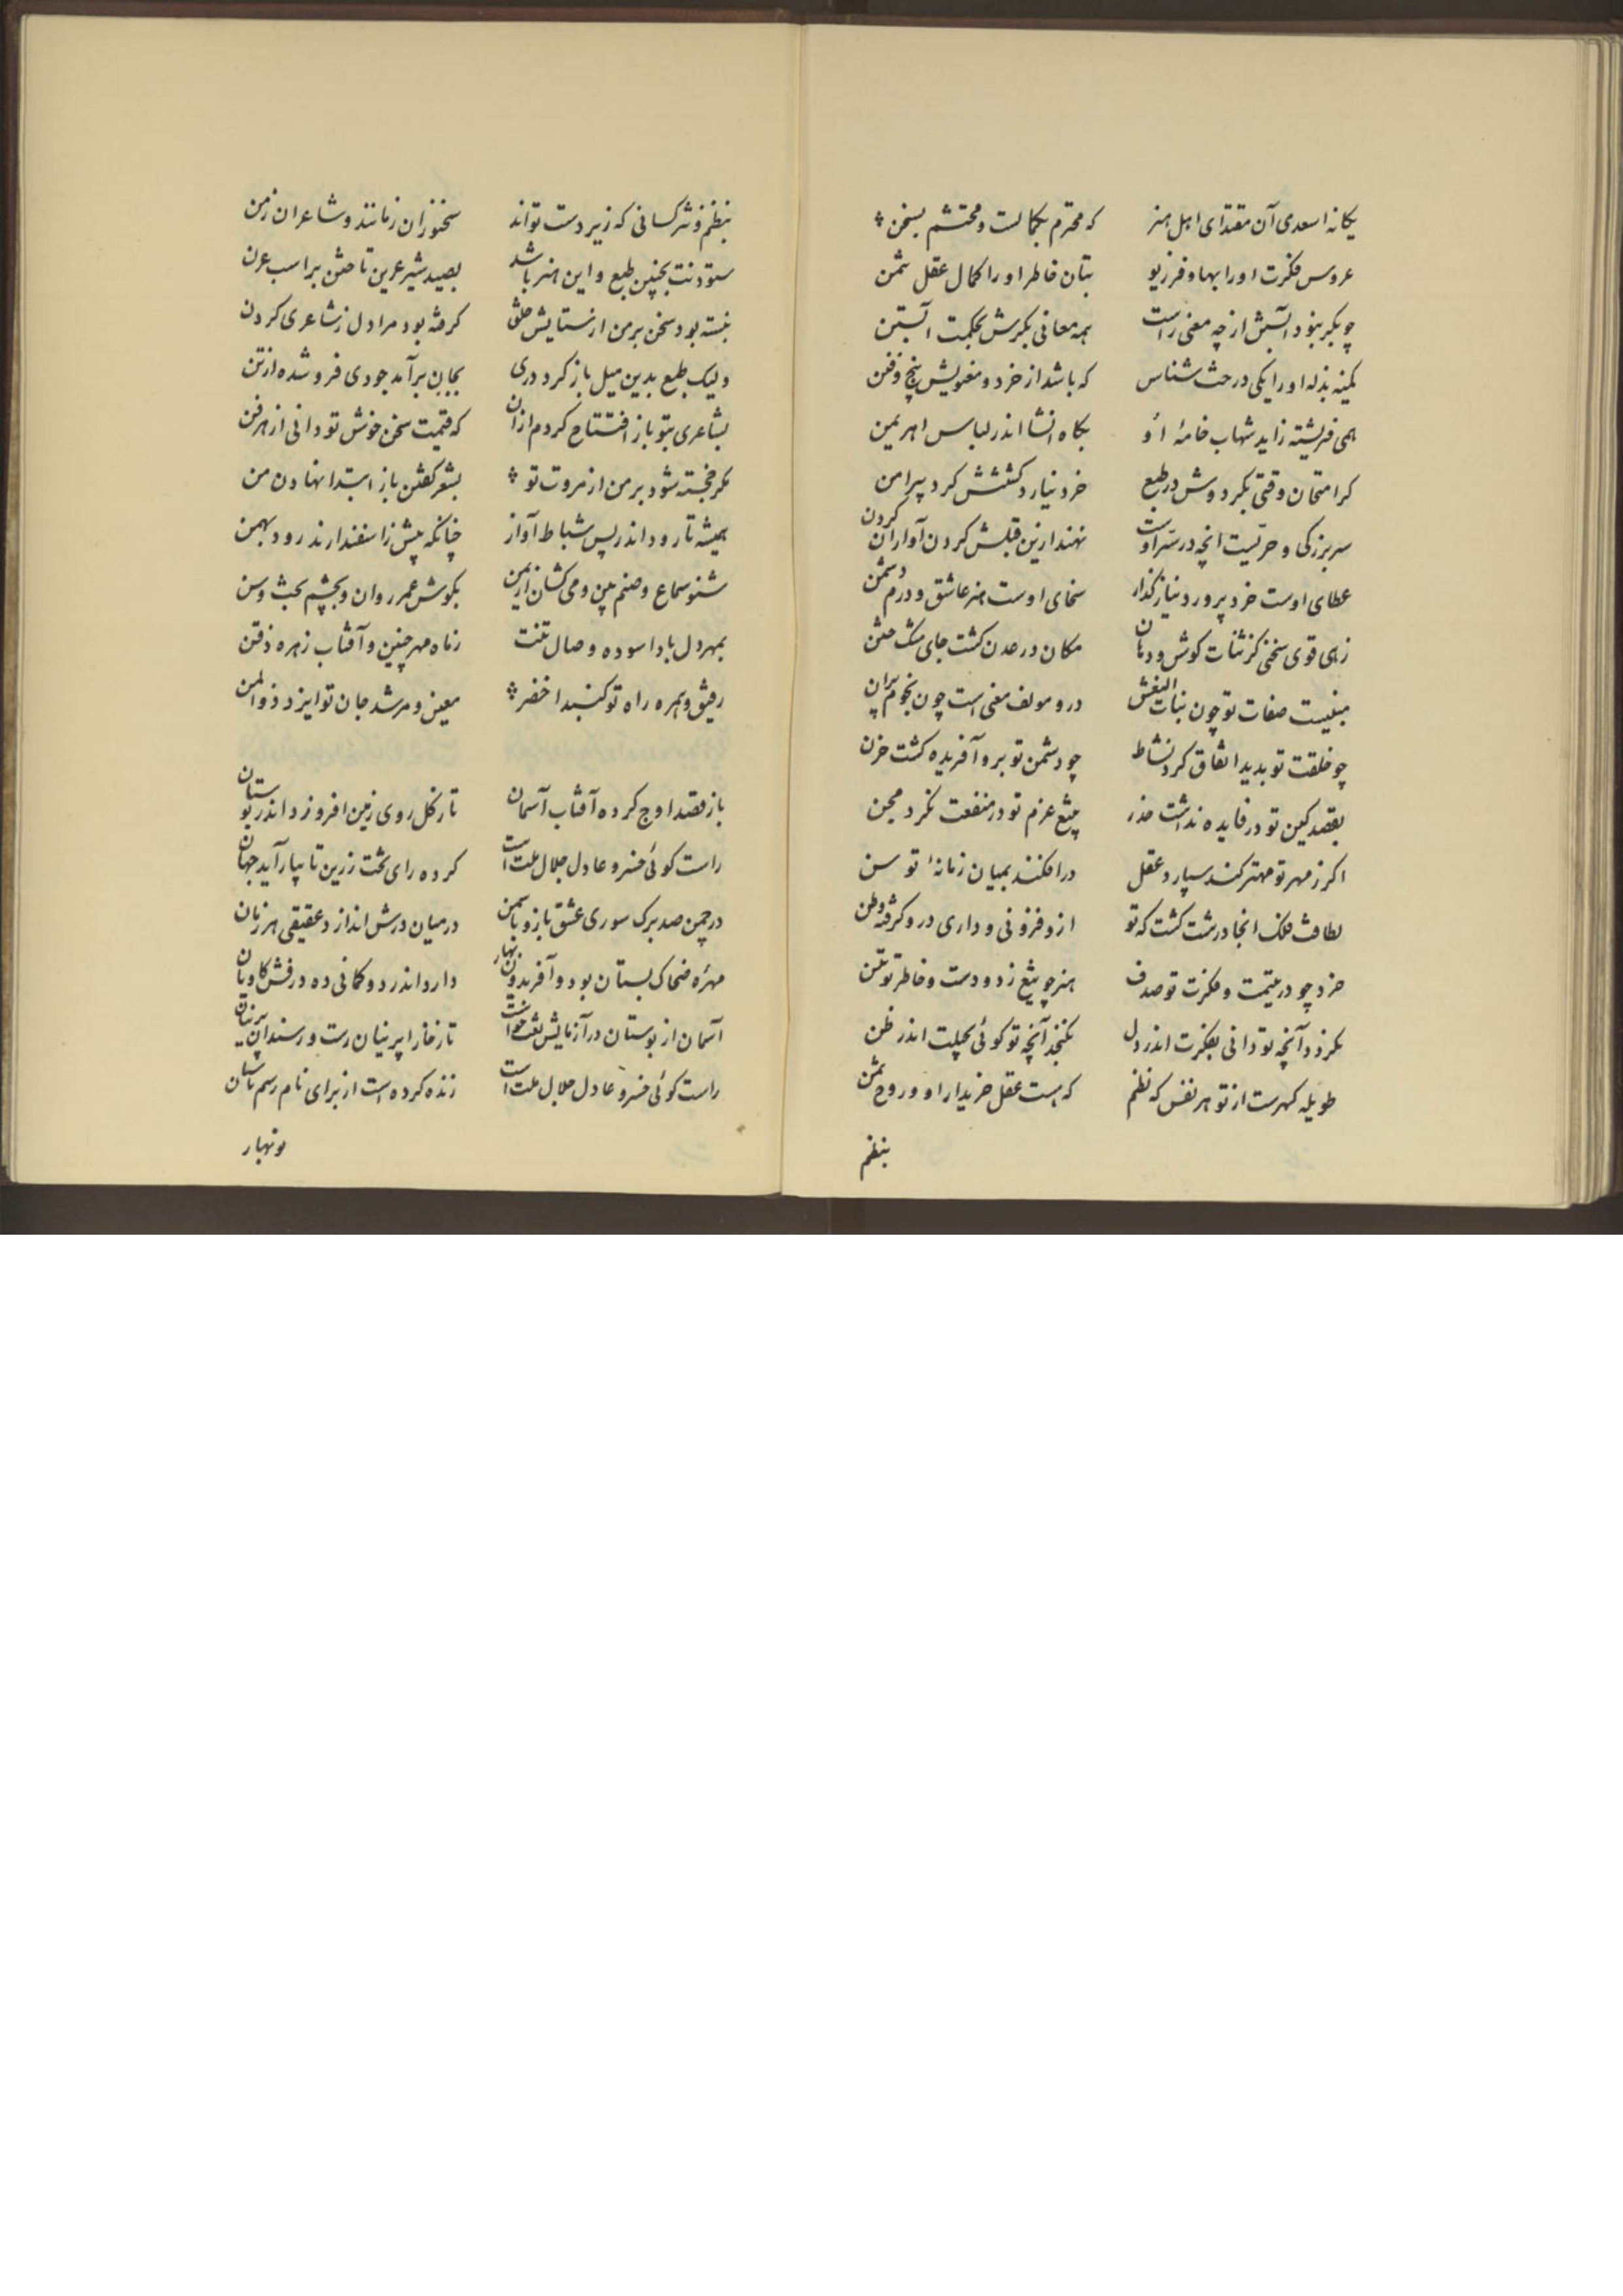 یکانه اسعدی آن مقتدای اهل هنر که محترم بکمالست و محتشم بسخن
عروس فکرت او را بها و فر زیو بتان خاطر او را کمال عقل ثمن
چو بکر بنود آبستنش از چه معنی راست همه معانی بکرش بحکمت آبستن
کمینه بذله او را یکی درخت شناس که باشد از خرد و معنویش بیخ و فنن
همی فریشته زاید شهاب خامهٔ او بکاه انشا اندر لباس اهریمن
کرا متحان وقتی بکرد وش در طبع خرد نیارد کشتنش کرد پیرامن
سر بزرکی و حریست انچه در سر اوست نهند ازین قبلش کردن آواران کردن
عطای اوست خرد پرور و نیاز کذار سخای اوست هنر عاشق و درم دشمن
زهی قوی سخنی کز ثنات کوش و دهان مکان در عدن کشت جای مشک ختن
مبنیست صفات تو چون بنات النعش درو مولف معنی است چون نجوم پرن
چو خلقت تو بدید اتفاق کرد نشاط چو دشمن تو برو آفریده کشت حزن
بقصد کین تو در فایده نداشت حذر بتیغ عزم تو در منفعت نکرد مجن
اکر ز مهر تو مهتر کند سپارد عقل در افکنند بمیان زمانهٔ تو سن
لطافت فلک انجا درشت کشت که تو ازو فزونی و داری درو کرفته وطن
خرد چو در یتیمت و فکرت تو صدف هنر چو تیغ زدودست و خاطر تو مسن
نکرزد آنچه تو دانی بفکرت اندر دل نکنجد آنچه تو کوئی بحیلت اندر ظن
طویله کهرست از تو هر نفس که نظم که هست عقل خریدار او و روح ثمن
بنظم
بنظم و نثر کسانی که زیر دست تواند سخنوران زمانند و شاعران زمن
ستودنت بچنین طبع و این هنر باشد بصید شیر عرین تاختن بر اسب عرن
ببسته بود سخن بر من از ستایش خلق کرفته بود مرا دل ز شاعری کردن
ولیک طبع بدین میل باز کرد دری بجان برآمد جودی فرو شده از تن
بشاعری بتو باز افتتاح کردم ازان که قیمت سخن خوش تو دانی از هر فن
مکر خجسته شود بر من از مروت تو بشعر کفتن باز ابتدا نهادن من
همیشه تا رود اندر پس شباط آوار چنانکه پیش ز اسفندارند رود بهمن
شنو سماع و صنم بین و می کشان ازیمن بکوش عمر روان و بچشم بخت وسن
بمهر دل باد اسوده و صال تنت ز ماه مهر چنین و آفتاب زهره ذقن
رفیق و همره راه تو کنبد اخضر معین و مرشد جان تو ایزد ذوالمن
باز قصد اوج کرده آفتاب آسمان تا ز کل روی زمین افروزد اندر بوستان
راست کوئی خسرو عادل جلال ملت است کرده رای تخت زرین تا بیارآید جهان
در چمن صد برک سوری عشق بازو یاسمن در میان درش اندازد عقیقی هر زبان
مهره ضحاک بستان بود و آفریدون بهار دارد اندر دو کمانی ده درفش کاویان
آسمان از بوستان در آزمایش نقت خواست تا ز خار ا پرنیان رست و ر سندان پرنیان
راست کوئی خسرو عادل جلال ملت است زنده کرده است از برای نام رسم باستان
نوبهار